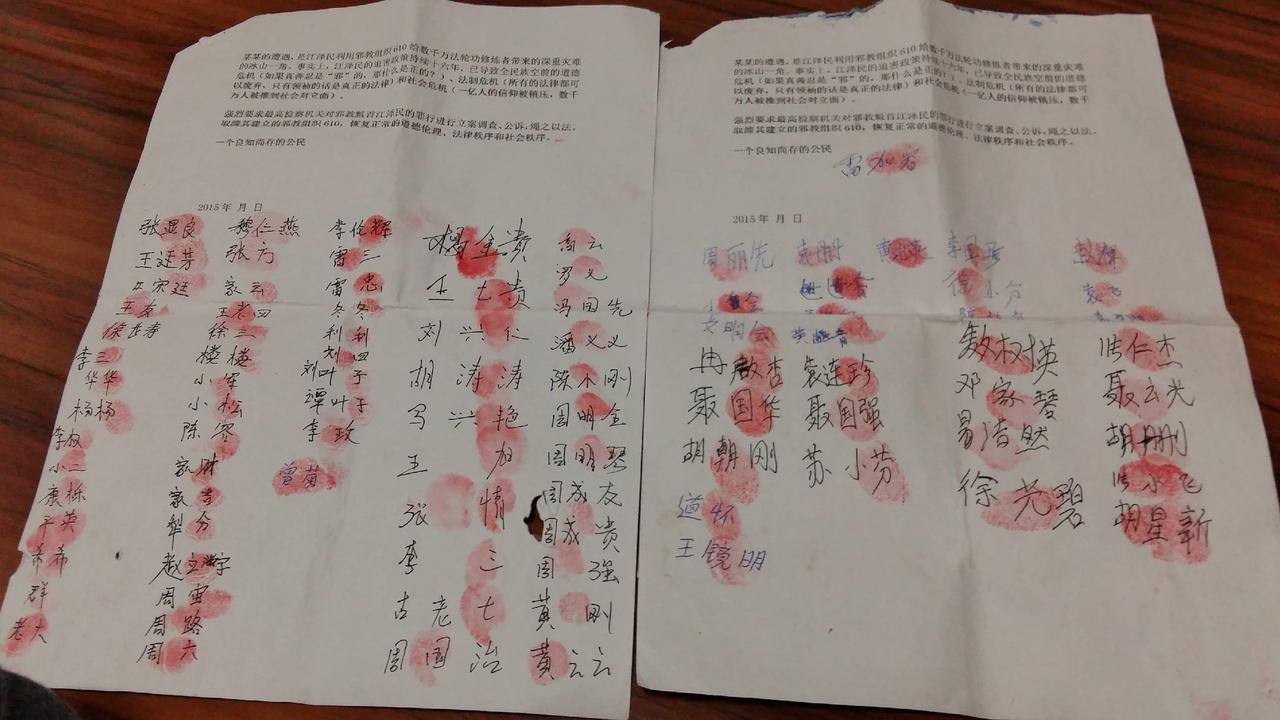 某某的遭遇，是江泽民利用邪教组织610给数千万法轮功修炼者带来的深重灾难
的冰山一角。事实上，江泽民的迫害政策持续十六年，已导致全民族空前的道德
危机（如果真善忍是“邪”的，那什么是正的？）、法制危机（所有的法律都可
以废弃，只有领袖的话是真正的法律）和社会危机（一亿人的信仰被镇压，数千
万人被推到社会对立面）。
强烈要求最高检察机关对邪教魁首江泽民的罪行进行立案调查、公诉，绳之以法。
取缔其建立的邪教组织610，恢复正常的道德伦理、法律秩序和社会秩序。
一个良知尚存的公民
2015年 月 日
张显良 魏仁燕 李伦辉 杨金贵 高云
王廷芳 张方 雷三 王七贵 罗义
宋廷 家云 雷忠 刘兴仁 冯国先
王友 王老四 冬冬 胡涛涛 潘义义
徐三 利利 马兴艳 陈木刚
李三 楼楼 刘四 王加 周明金
华华 小军 刘叶子 张情 周明琴
杨杨 小松 谭叶子 李三 周成友
李权 陈冬 李政 古老七 周成贵
小二 家财 曾菊 周国治 周强
康栋 家芳 黄刚
平英 犁分 黄云云
希希 赵立宇
群 周雷
老大 周路
周六
某某的遭遇，是江泽民利用邪教组织610给数千万法轮功修炼者带来的深重灾难
的冰山一角。事实上，江泽民的迫害政策持续十六年，已导致全民族空前的道德
危机（如果真善忍是“邪”的，那什么是正的？）、法制危机（所有的法律都可
以废弃，只有领袖的话是真正的法律）和社会危机（一亿人的信仰被镇压，数千
万人被推到社会对立面）。
强烈要求最高检察机关对邪教魁首江泽民的罪行进行立案调查、公诉，绳之以法。
取缔其建立的邪教组织610，恢复正常的道德伦理、法律秩序和社会秩序。
一个良知尚存的公民
2015年 月 日
周丽先 袁刚 彭辉
徐小分 袁飞
文明会
冉敖杏 袁连珍 敖权英 洪仁杰
聂国华 聂国强 邓家琴 聂云光
胡朝刚 苏小芬 易浩然 胡刚
道怀 徐光碧 洪小飞
王镜明 胡星新